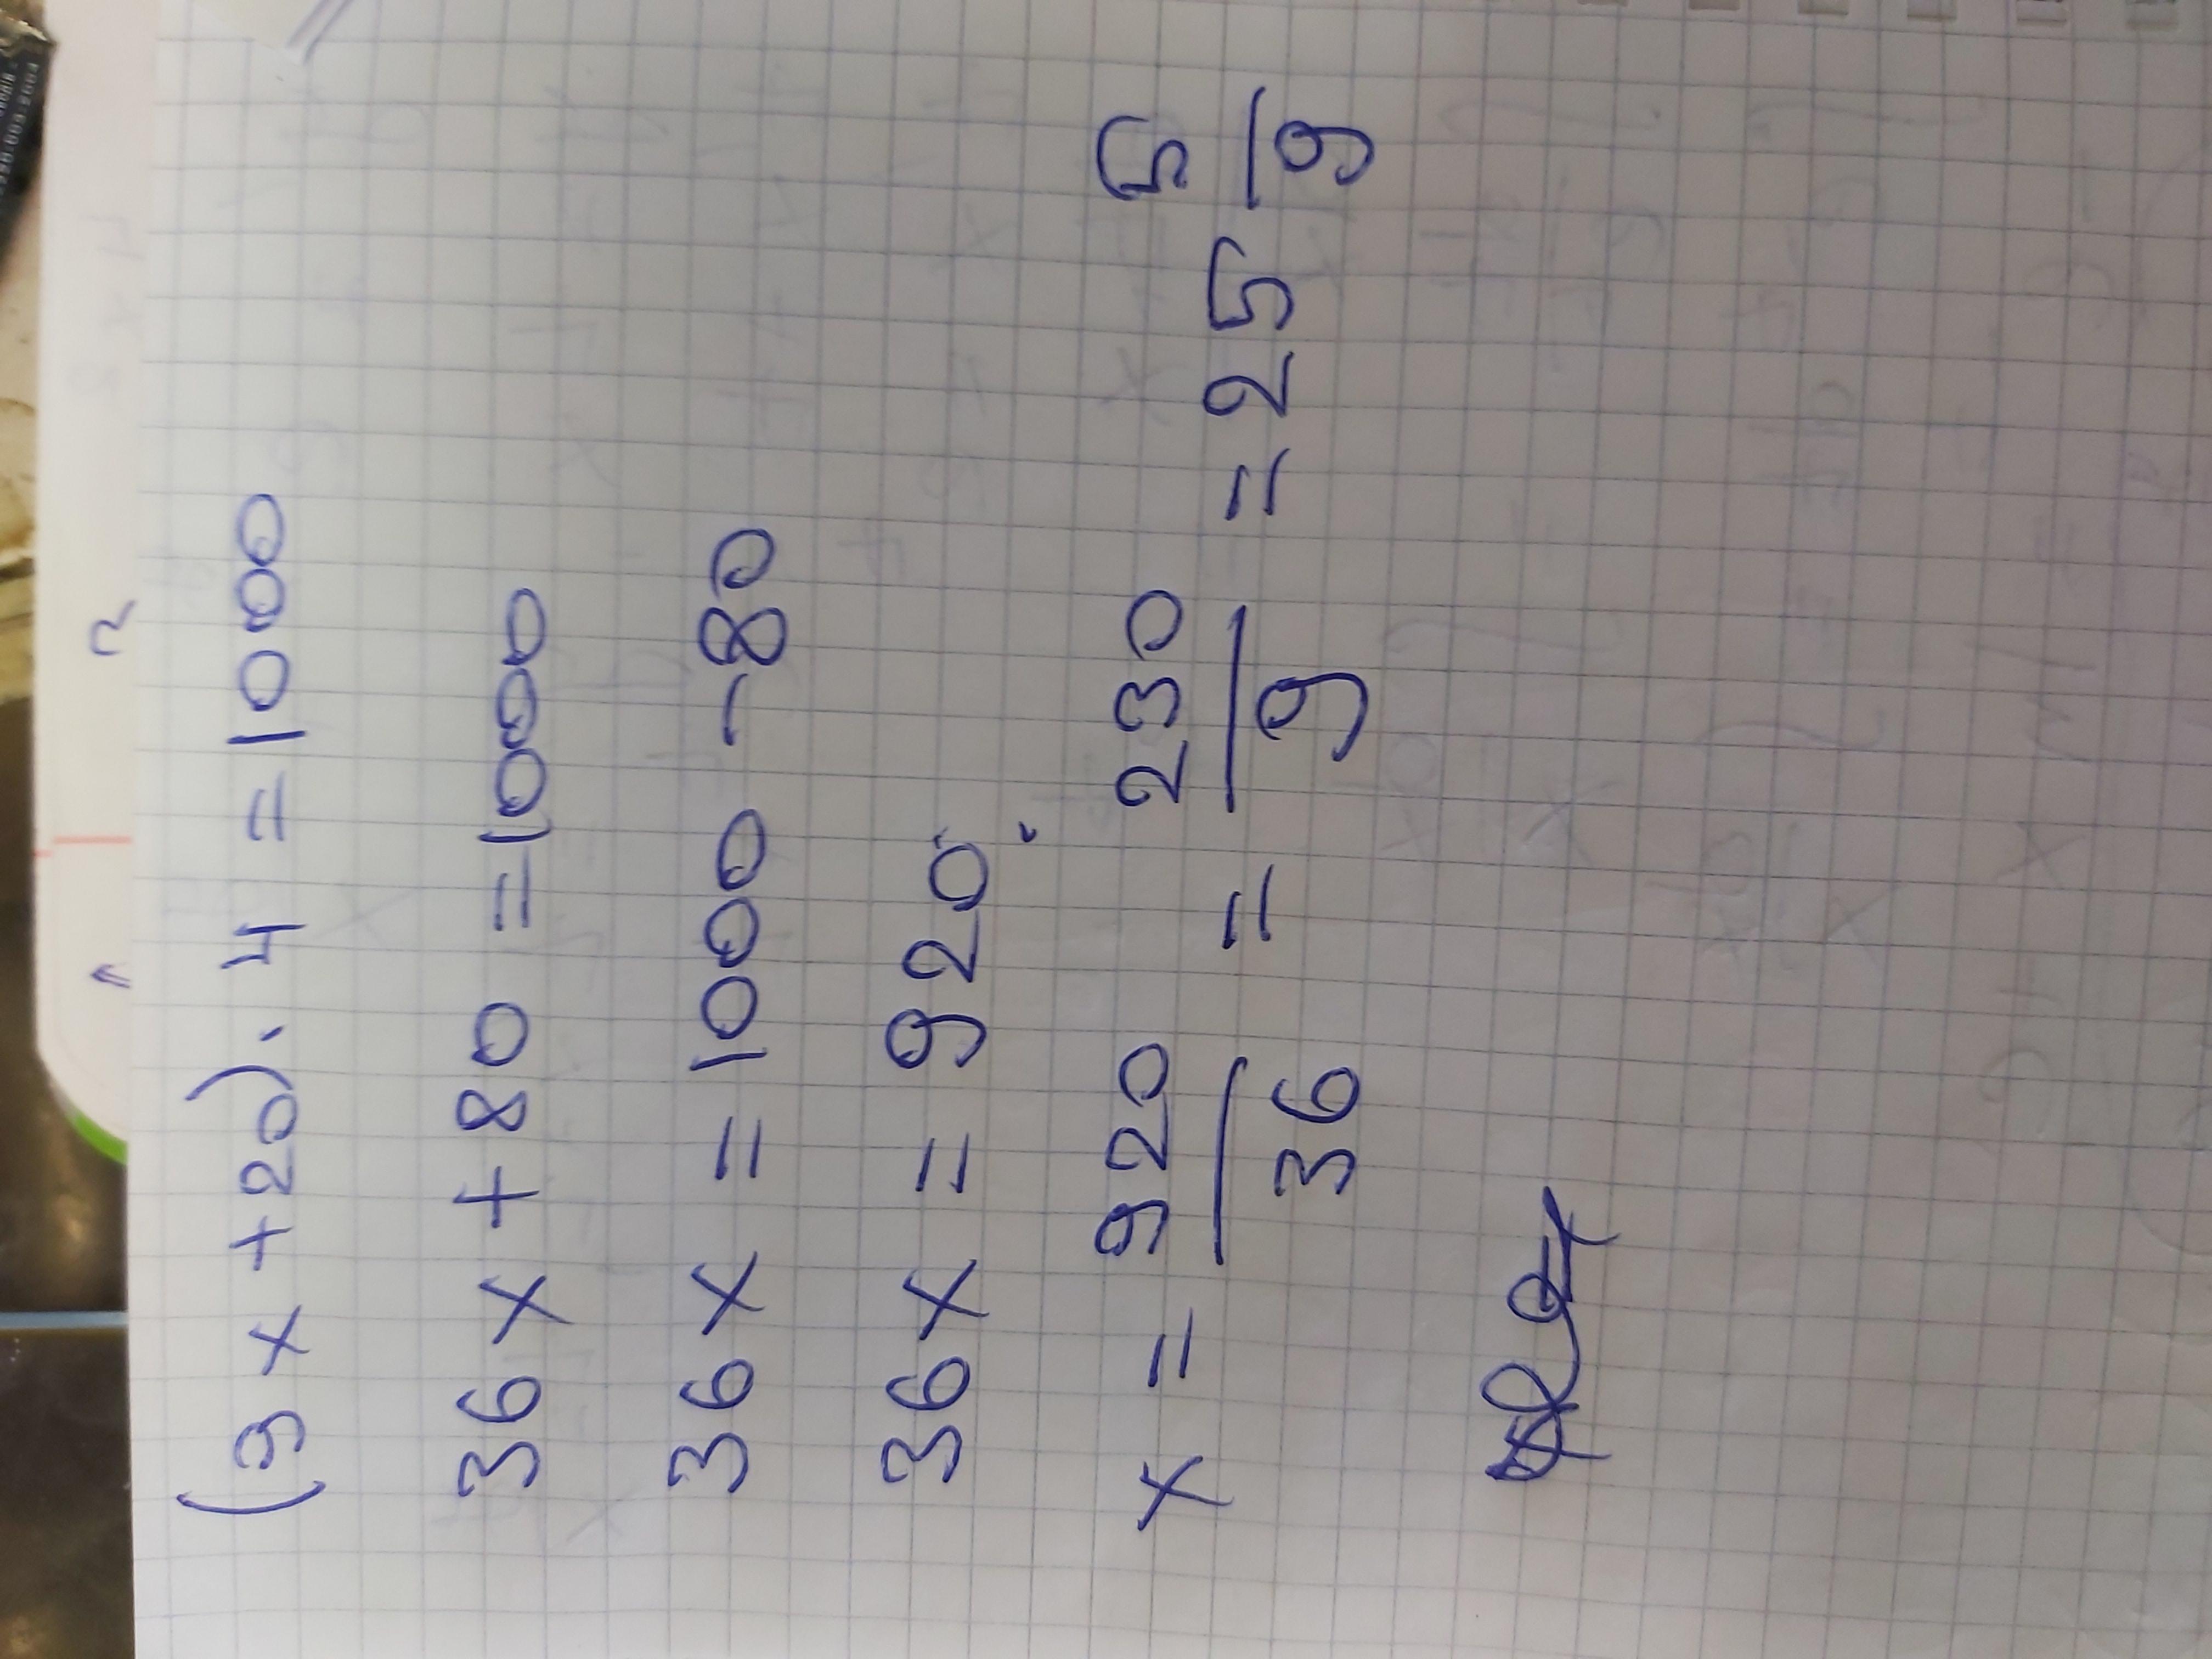 (9x +20). 4 = 1000
36x + 80 = 1000
36x = 1000 - 80
36x = 920
x = 920/36 = 230/9 = 25 5/9